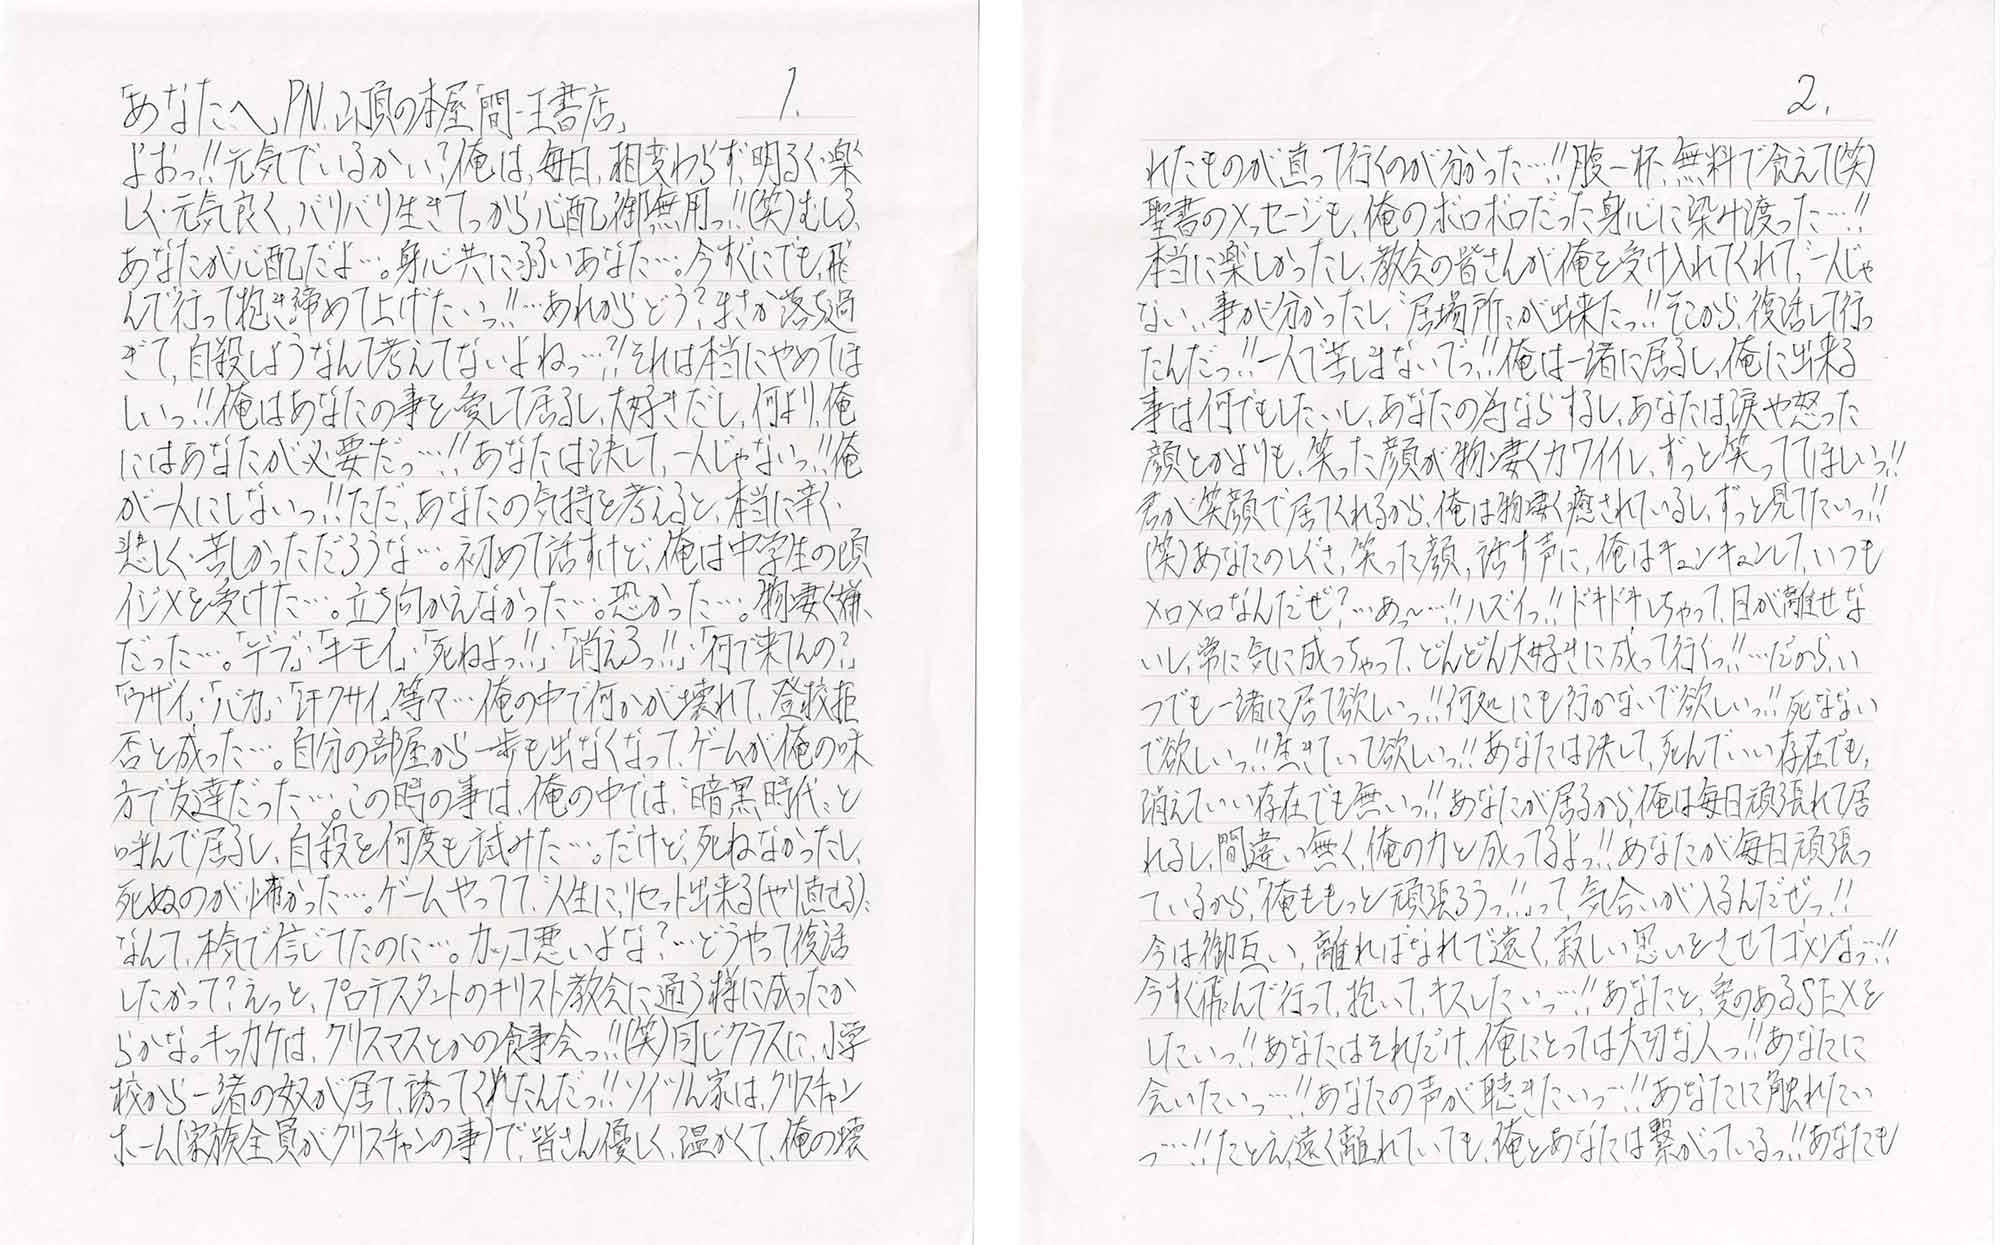 「あなたへ」PN.山頂の本屋「間一王書店」
1.
よおっ!!元気でいるかい?俺は、毎日、相変わらず明るく・楽
しく・元気良く、バリバリ生きてっから心配御無用っ!!(笑)むしろ、
あなたが心配だよ…。身心共に弱いあなた…。今すぐにでも、飛
んで行って抱き締めて上げたいっ!!…あれからどう?まさか落ち過
ぎて、自殺しようなんて考えてないよねっ…?!それは本当にやめてほ
しいっ!!俺はあなたの事を愛して居るし、大好きだし、何より、俺
にはあなたが必要だっ…!!あなたは決して、一人じゃないっ!!俺
が一人にしないっ!!ただ、あなたの気持を考えると、本当に辛く・
悲しく・苦しかっただろうな…。初めて話すけど、俺は中学生の頃
イジメを受けた…。立ち向かえなかった…。恐かった…。物凄く嫌
だった…。「デブ」・「キモイ」・「死ねよっ!!」・「消えろっ!!」・「何で来てんの?」
「ウザイ」・「バカ」・「汗クサイ」等々…俺の中で何かが壊れて、登校拒
否と成った…。自分の部屋から一歩も出なくなって、ゲームが俺の味
方で友達だった…。この時の事は、俺の中では、〝暗黒時代〟と
呼んで居るし、自殺を何度も試みた…。だけど、死ねなかったし、
死ぬのが怖かった…。ゲームやってて、〝人生に、リセット出来る(やり直せる)〟
なんて、本気で信じてたのに…。カッコ悪いよな?…どうやって復活
したかって?えっと、プロテスタントのキリスト教会に通う様に成ったか
らかな。キッカケは、クリスマスとかの食事会っ!!(笑)同じクラスに、小学
校から一緒の奴が居て、誘ってくれたんだっ!!ソイツん家は、クリスチャン
ホーム(家族全員がクリスチャンの事)で、皆さん優しく、温かくて、俺の壊
2.
れたものが直って行くのが分かった…!!腹一杯、無料で食えて(笑)
聖書のメッセージも、俺のボロボロだった身心に染み渡った…!!
本当に楽しかったし、教会の皆さんが俺を受け入れてくれて、〝一人じゃ
ない〟事が分かったし、〝居場所〟が出来たっ!!そこから、復活して行っ
たんだっ!!一人で苦しまないでっ!!俺は一緒に居るし、俺に出来る
事は何でもしたいし、あなたの為ならするし、あなたは、涙や怒った
顔とかよりも、笑った顔が物凄くカワイイし、ずっと笑っててほしいっ!!
君が笑顔で居てくれるから、俺は物凄く癒されているし、ずっと見てたいっ!!
(笑)あなたのしぐさ、笑った顔、話す声に、俺はキュンキュンして、いつも
メロメロなんだぜ?…あっ〜…!!ハズイっ!!ドキドキしちゃって、目が離せな
いし、常に気に成っちゃって、どんどん大好きに成って行くっ!!…だから、い
つでも一緒に居て欲しいっ!!何処にも行かないで欲しいっ!!死なない
で欲しいっ!!生きていって欲しいっ!!あなたは決して、死んでいい存在でも、
消えていい存在でも無いっ!!あなたが居るから、俺は毎日頑張れて居
れるし、間違い無く、俺の力と成ってるよっ!!あなたが毎日頑張っ
ているから、「俺ももっと頑張ろうっ!!」って、気合いが入るんだぜっ!!
今は御互い、離ればなれで遠く、寂しい思いをさせてゴメンなっ…!!
今すぐ飛んで行って、抱いて、キスしたいっ…!!あなたと、愛のあるSEXを
したいっ!!あなたはそれだけ、俺にとっては大切な人っ!!あなたに
会いたいっ…!!あなたの声が聴きたいっ…!!あなたに触れたい
っ…!!たとえ、遠く離れていても、俺とあなたは繋がっているっ!!あなたも